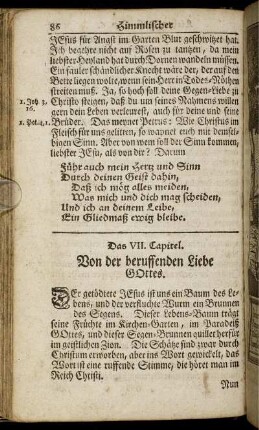 86 Himmlischer
JEsus für Angst im Garten Blut geschwitzet hat.
Ich begehre nicht auf Rosen zu tantzen, da mein
liebster Heyland hat durch Dornen wandeln müssen.
Ein fauler schändlicher Knecht wäre der, der auf den
Bette liegen wolte, wenn sein Herr in Todes-Nöthen
streiten muß. Ja, so hoch soll deine Gegen-Liebe zu
1. Joh. 3, Christo steigen, daß du um seines Nahmens willen
16. gern dein Leben verleurest, auch für deine und seine
1. Pet. 4, 1. Brüder. Das meynet Petrus: Wie Christus im
Fleisch für uns gelitten, so wapnet euch mit demsel-
bigen Sinn. Aber von wem soll der Sinn kommen,
liebster JEsu, als von dir? Darum
Führ auch mein Hertz und Sinn
Durch deinen Geist dahin,
Daß ich mög alles meiden,
Was mich und dich mag scheiden,
Und ich an deinem Leibe,
Ein Gliedmaß ewig bleibe.
Das VII. Capitel.
Von der beruffenden Liebe
GOttes.
DEr getödtete JEsus ist uns ein Baum des Le-
bens, und der verfluchte Wurm ein Brunnen
des Segens. Dieser Lebens-Baum trägt
seine Früchte im Kirchen-Garten, im Paradeiß
GOttes, und dieser Segen-Brunnen quillet herfür
im geistlichen Zion. Die Schätze sind zwar durch
Christum erworben, aber ins Wort gewickelt, das
Wort ist eine ruffende Stimme, die höret man im
Reich Christi.
Nun